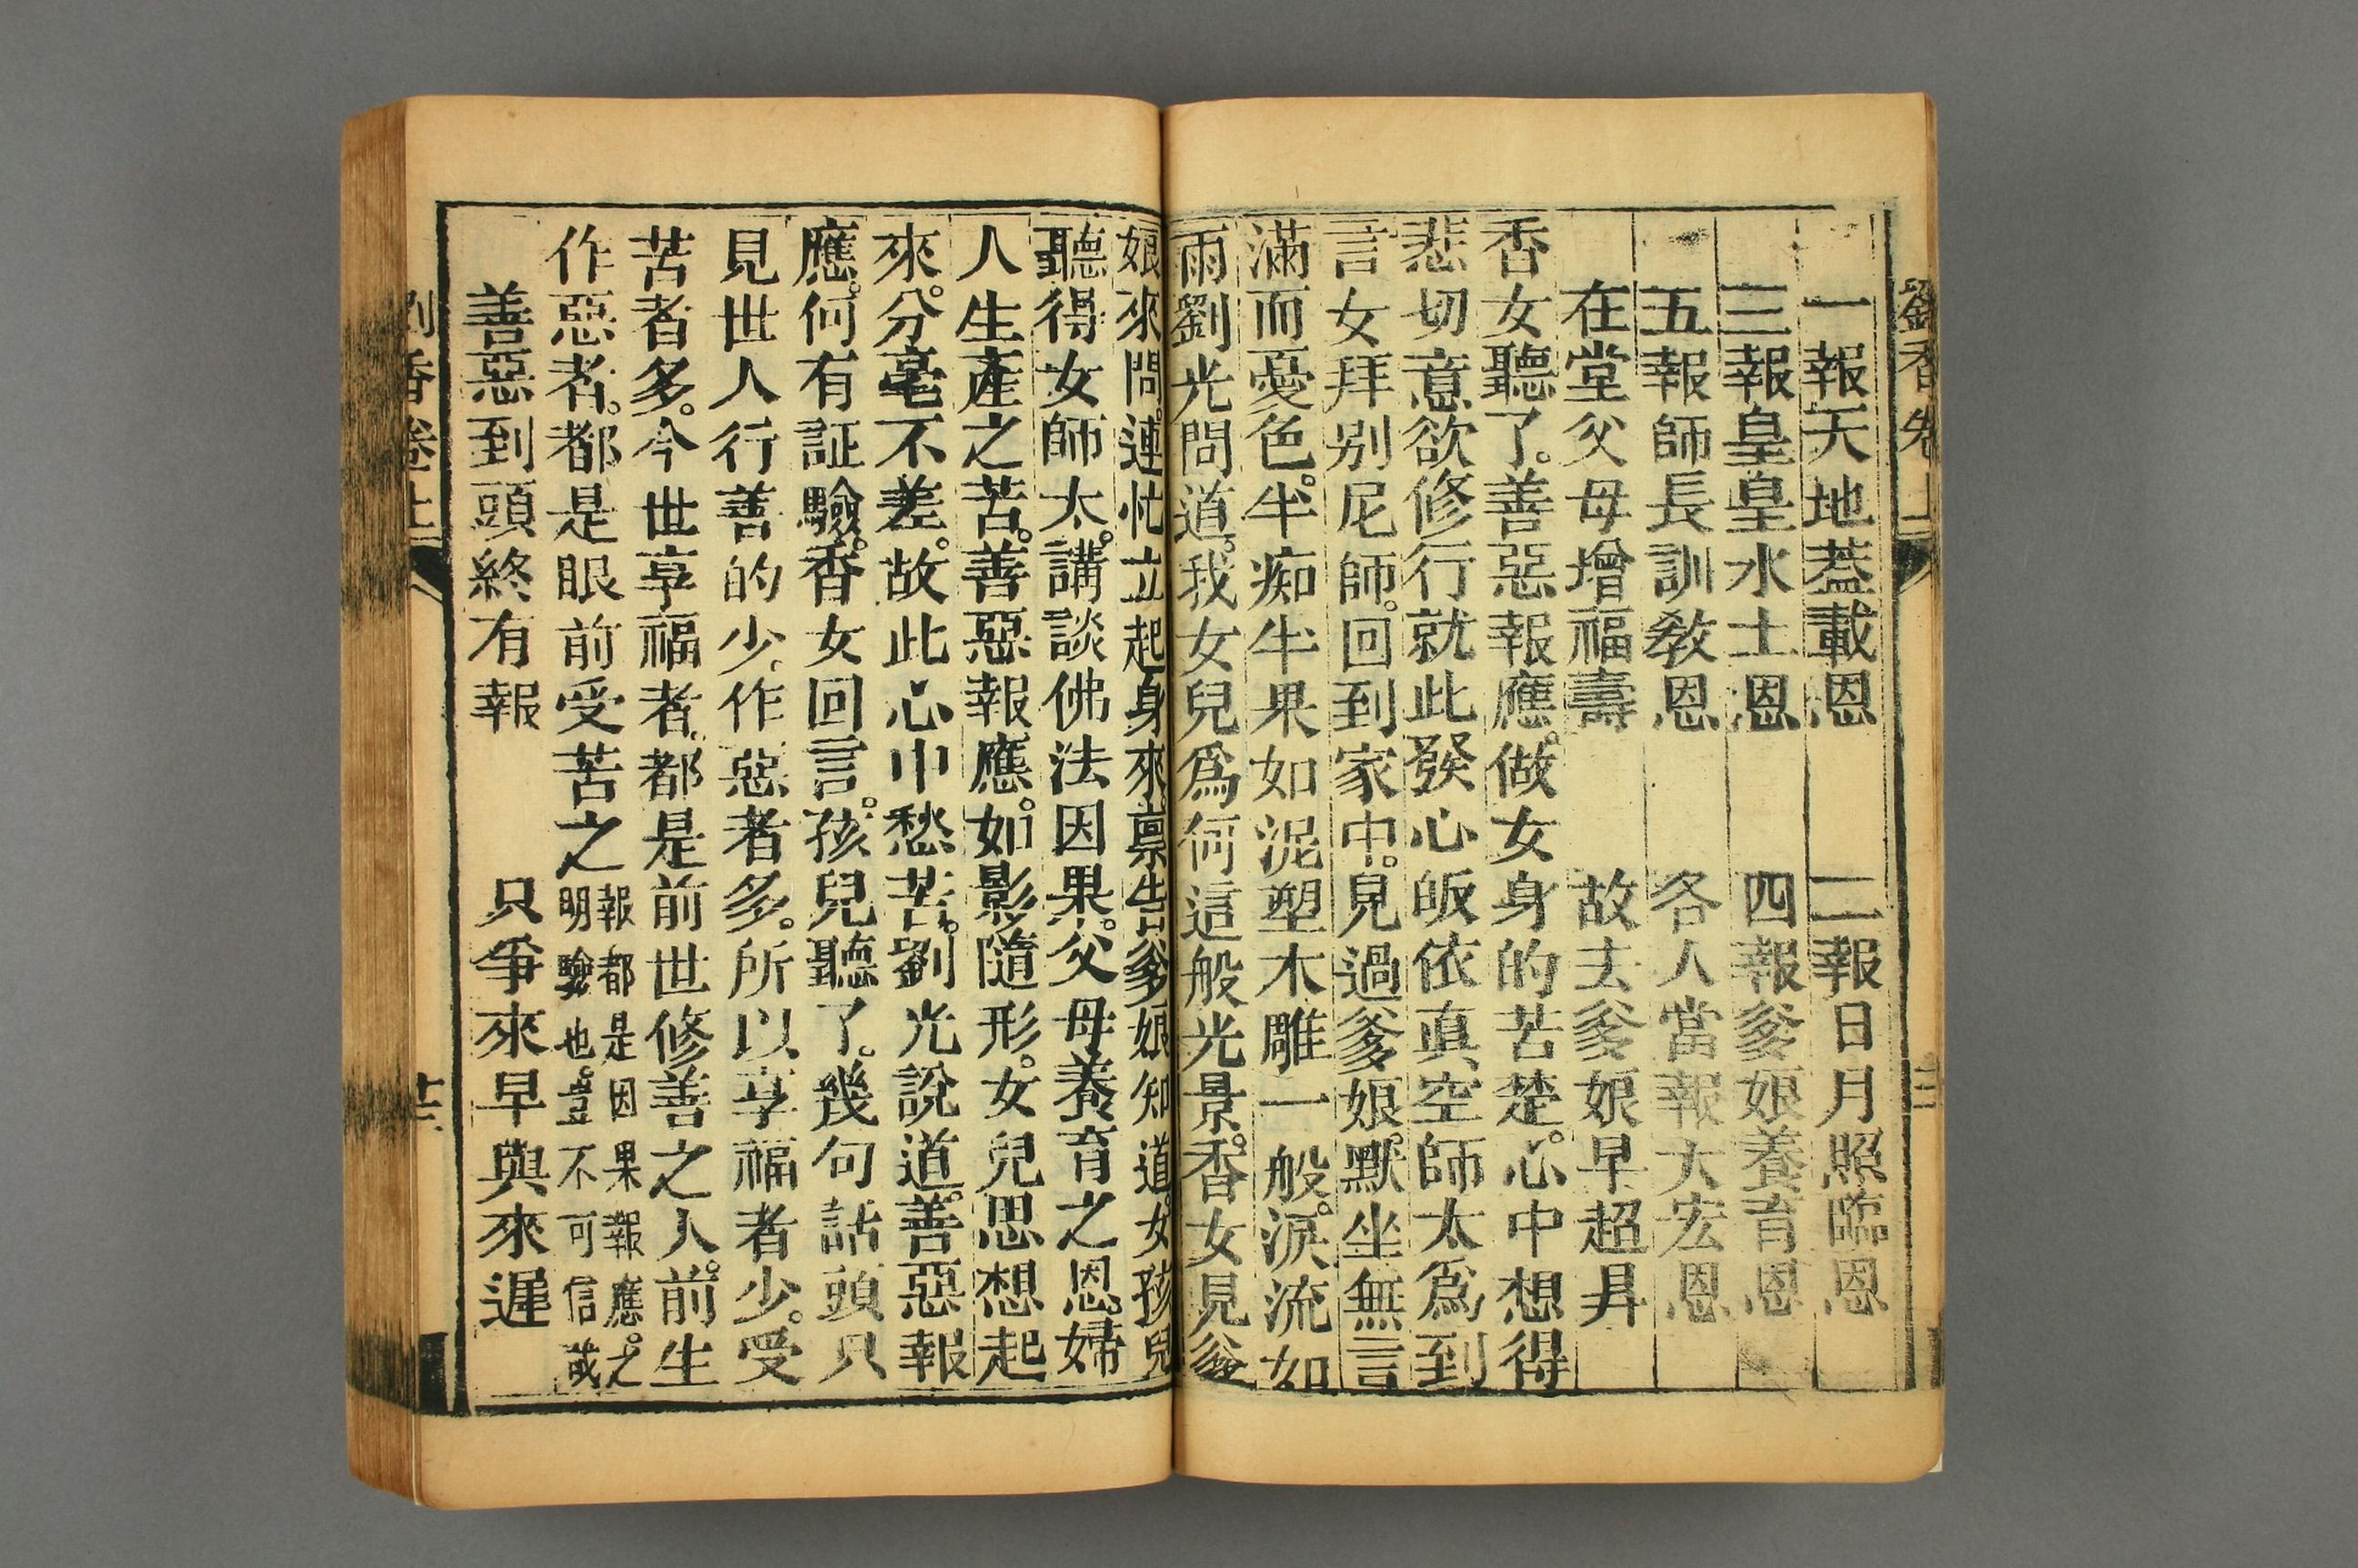 劉香卷上
一報天地蓋載恩　二報日月照臨恩
三報皇皇水土恩　四報爹娘養育恩
五報師長訓教恩　各人當報大宏恩
在堂父母增福壽　故去爹娘早超昇
香女聽了。善惡報應。做女身的苦楚。心中想得
悲切意欲修行就此發心皈依眞空師太爲到
言女拜别尼師。回到家中。見過爹娘。默坐無言
滿而憂色。半痴半果如泥塑木雕一般。淚流如
雨劉光問道。我女兒爲何這般光景。香女見爹
娘來問。連忙立起身來稟告爹娘知道。女孩兒
聽得女師太。講談佛法因果。父母養育之恩。婦
人生產之苦。善惡報應。如影隨形。女兒思想起
來。分毫不差。故此心中愁苦。劉光說道。善惡報
應。何有証驗。香女回言。孩兒聽了。幾句話頭只
見世人行善的少。作惡者多。所以享福者少。受
苦者多。今世享福者。都是前世修善之人。前生
作惡者。都是眼前受苦之報都是因果報應。之明驗也。豈不可信哉
善惡到頭終有報　只爭來早與來遲
劉香卷上